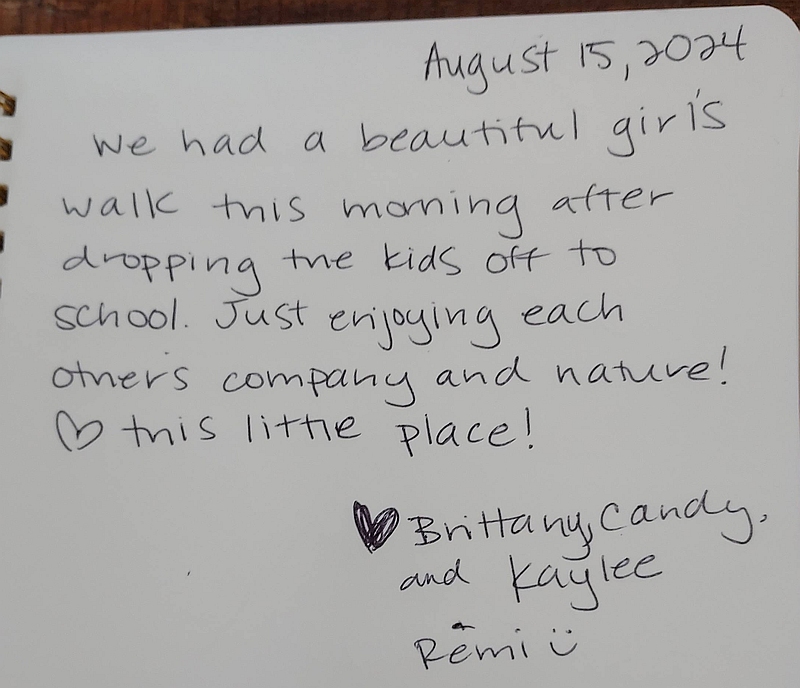 August 15, 2024
We had a beautiful girl's
walk this morning after
dropping the kids off to
school. Just enjoying each
others company and nature!
♡ this little place!
♥ Brittany, Candy,
and Kaylee
Rêmi ü